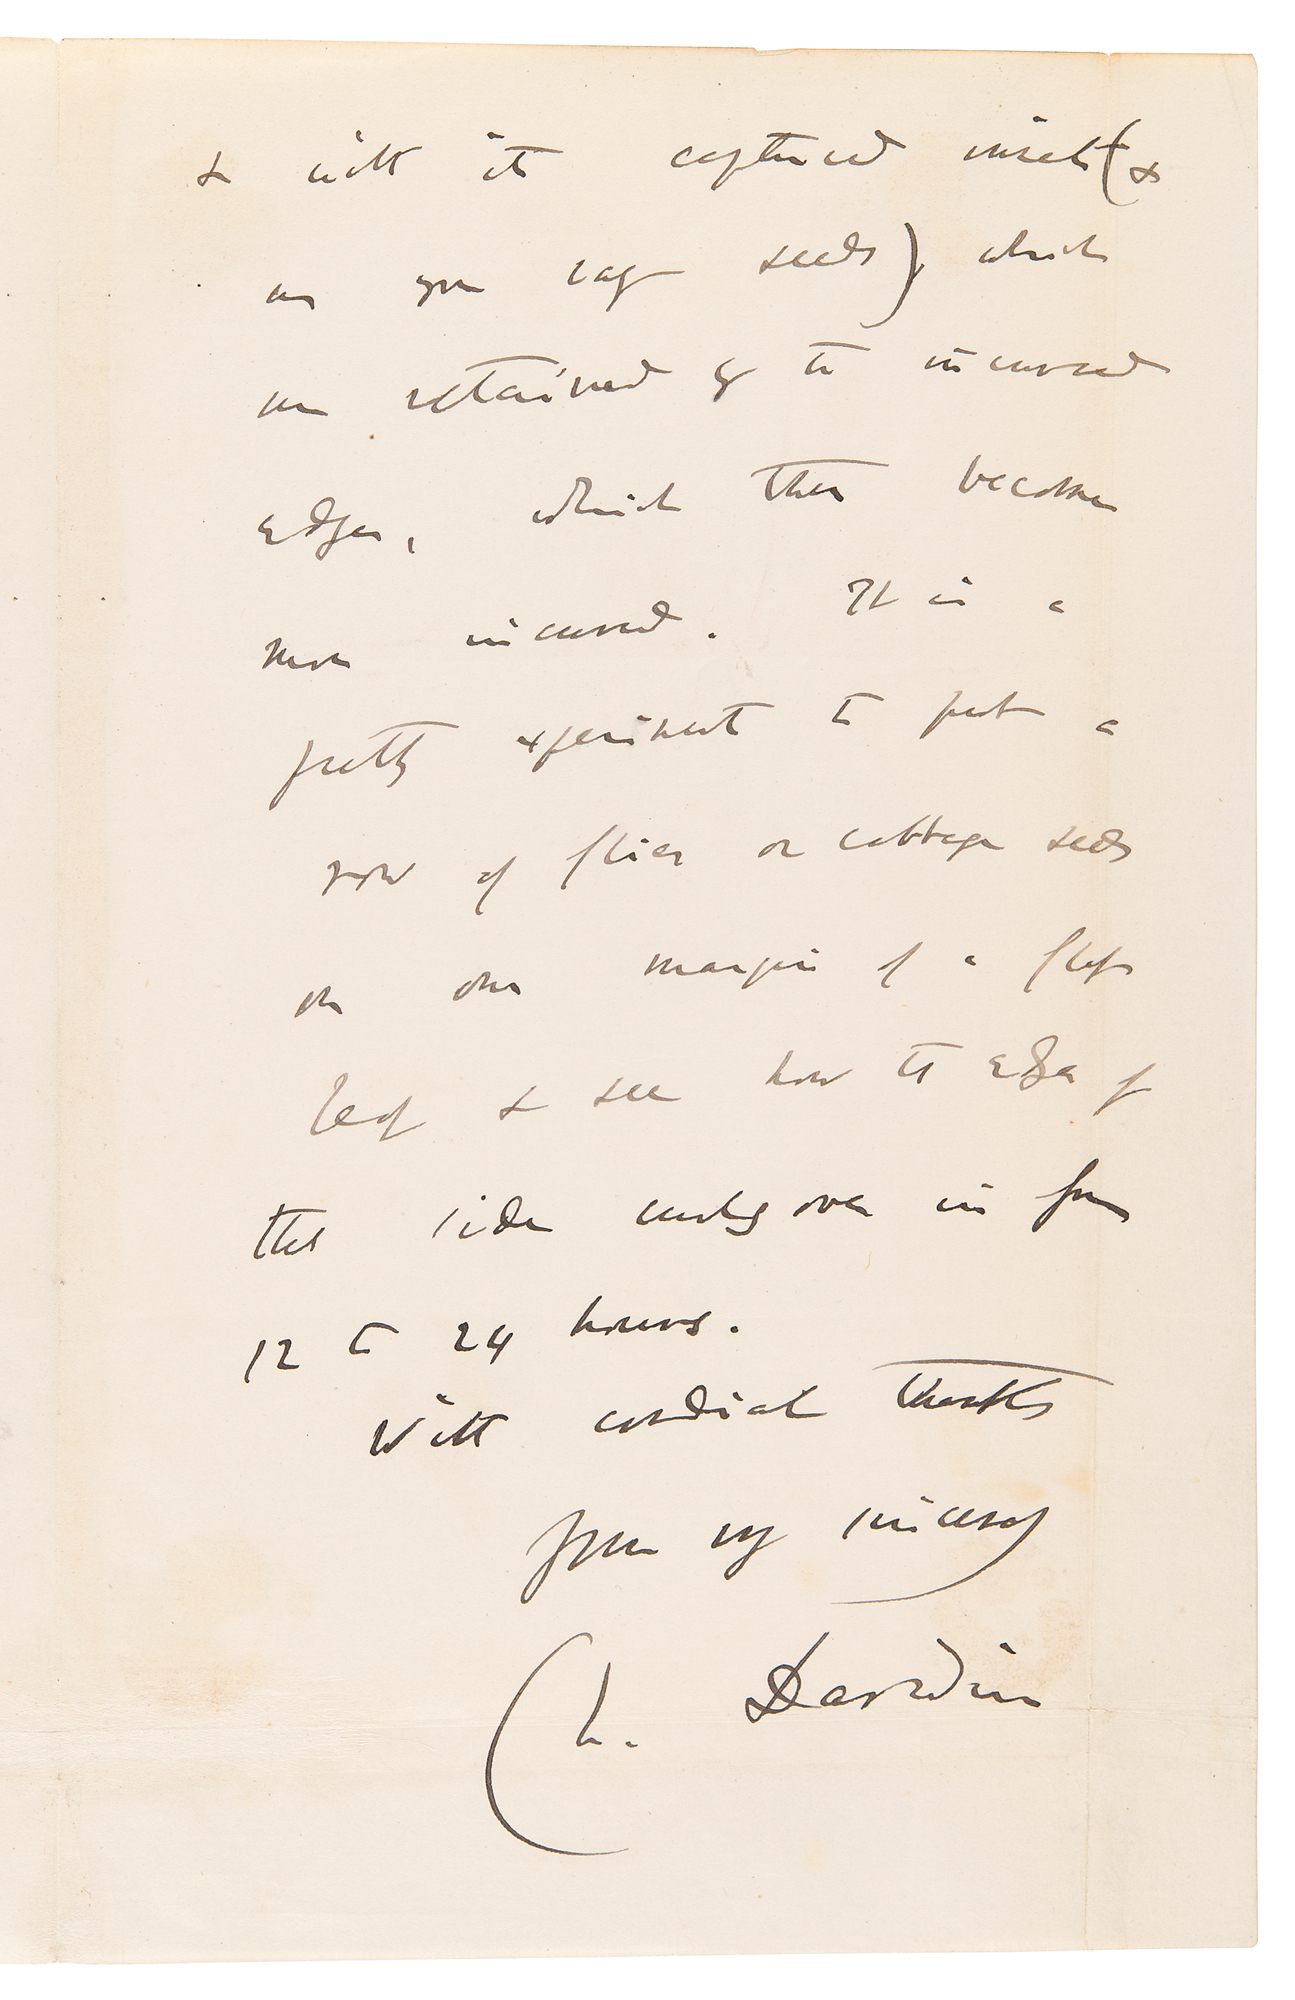 & with its captured insects (&
as you say seeds), which
are retained by the incurved
edges, which then become
more incurved. It is a
pretty experiment to put a
row of flies or cabbage seeds
on one margin of a flat
leaf & see how the edge of
this side curls over in from
12 to 24 hours.
With cordial thanks
yours very sincerely
Ch. Darwin